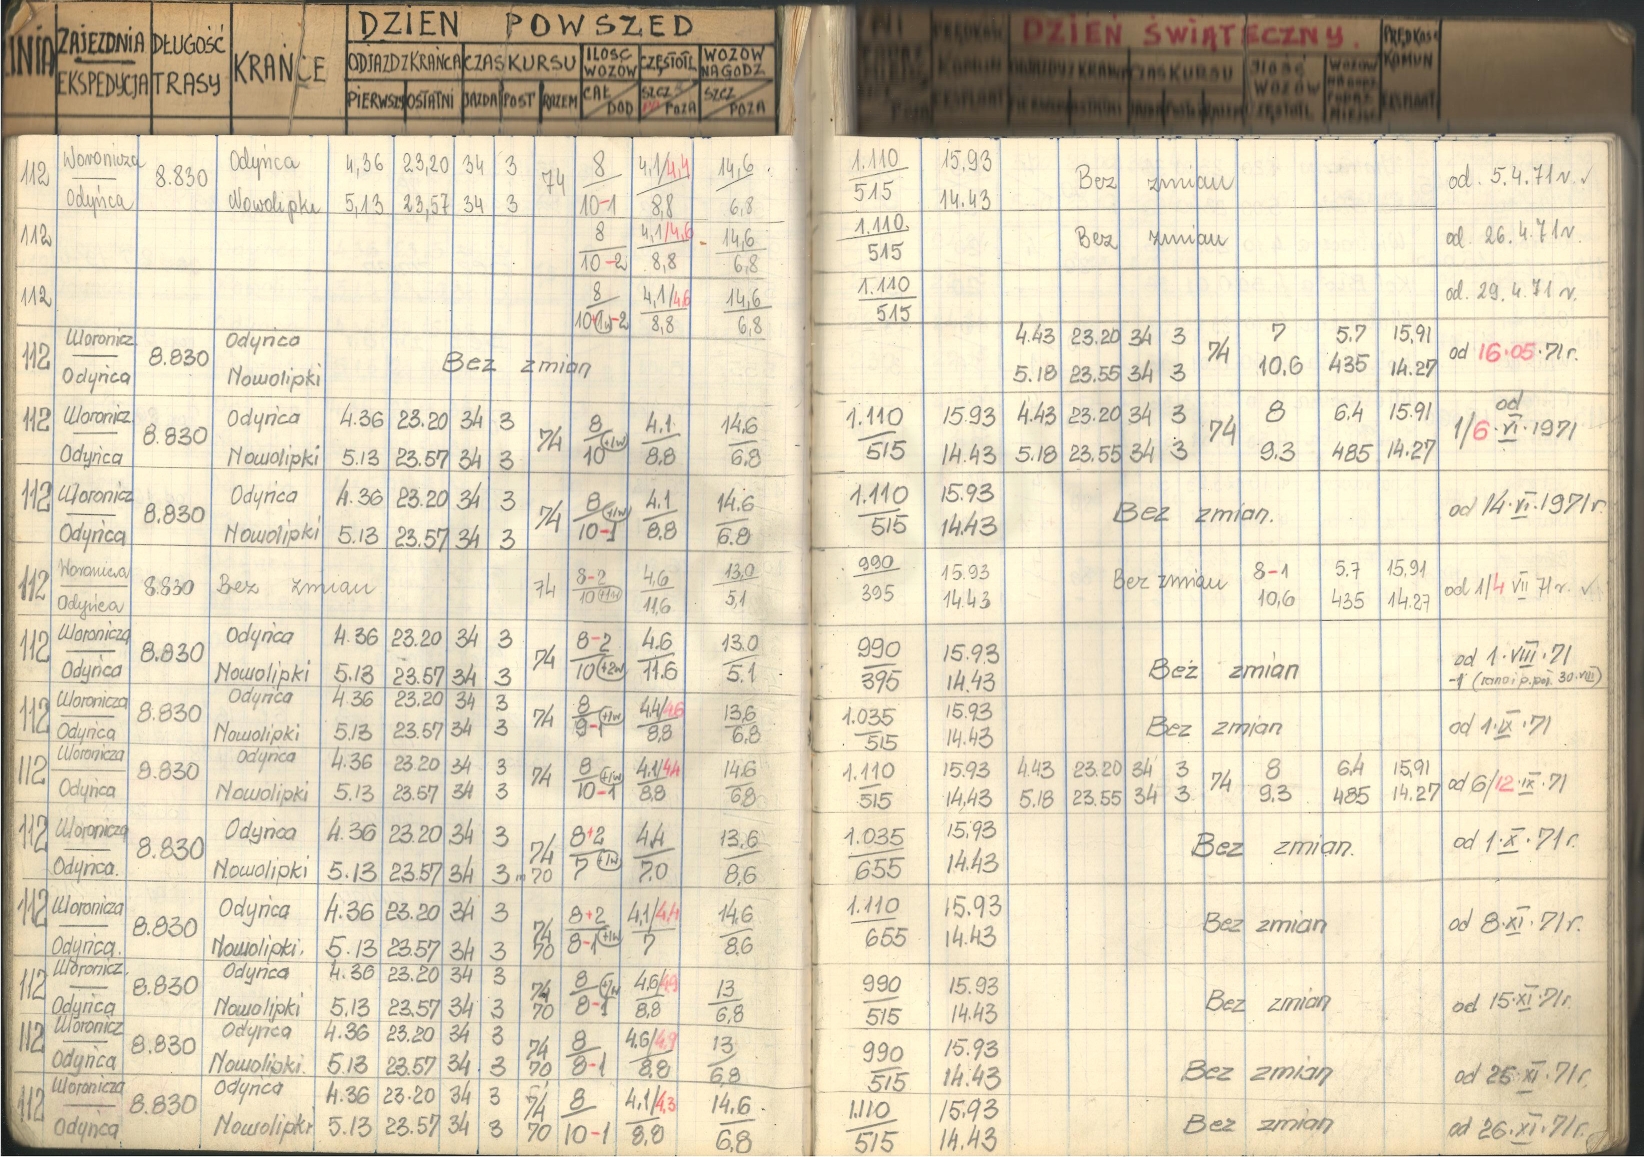 DZIEŃ POWSZED
LINIA ZAJEZDNIA DŁUGOŚĆ KRAŃCE ODJAZD Z KRAŃCA CZAS KURSU ILOŚĆ WOZÓW CZĘSTOTL WOZÓW NA GODZ
EKSPEDYCJA TRASY PIERWSZY OSTATNI JAZDA POST RAZEM CAŁ DOD SZCZ POZA SZCZ POZA
DZIEŃ ŚWIĄTECZNY.
PRĘDKOŚĆ KOMUN
EKSPLOAT
112 Woronicza 8.830 Odyńca 4,36 23,20 34 3 74 8 4,1/4,4 14,6 1.110 15.93 Bez zmian od. 5.4.71 r.
Odyńca Nowolipki 5,13 23,57 34 3 10-1 8,8 6,8 515 14.43
112 8 4,1/4,6 14,6 1.110 Bez zmian od. 26.4.71 r.
10-2 8,8 6,8 515
112 8 4,1/4,6 14,6 1.110 od. 29.4.71 r.
10+1w-2 8,8 6,8 515
112 Woronicz 8.830 Odyńca Bez zmian 4.43 23.20 34 3 74 7 5.7 15,91 od 16.05.71 r.
Odyńca Nowolipki 5.18 23.55 34 3 10,6 435 14.27
112 Woronicz 8.830 Odyńca 4.36 23.20 34 3 74 8 +1w 4.1 14.6 1.110 15.93 4.43 23.20 34 3 74 8 6.4 15.91 od 1/6.VI.1971
Odyńca Nowolipki 5.13 23.57 34 3 10 8,8 6,8 515 14.43 5.18 23.55 34 3 9.3 485 14.27
112 Woronicz 8.830 Odyńca 4.36 23.20 34 3 74 8 +1w 4.1 14.6 1.110 15.93 Bez zmian. od 14.VI.1971 r.
Odyńca Nowolipki 5.13 23.57 34 3 10-1 8,8 6.8 515 14.43
112 Woronicza 8.830 Bez zmian 74 8-2 4,6 13,0 990 15.93 Bez zmian 8-1 5.7 15,91 od 1/4 VII 71 r.
Odyńca 10 +1w 11,6 5,1 395 14.43 10,6 435 14.27
112 Woronicza 8.830 Odyńca 4.36 23.20 34 3 74 8-2 4.6 13.0 990 15.93 Bez zmian od 1.VIII.71
Odyńca Nowolipki 5.13 23.57 34 3 10 +2w 11.6 5.1 395 14.43 -1 (rano i p.poł. 30.VIII)
112 Woronicza 8.830 Odyńca 4.36 23.20 34 3 74 8 +1w 4.4/4.6 13,6 1.035 15.93 Bez zmian od 1.IX.71
Odyńca Nowolipki 5.13 23.57 34 3 9-1 8,8 6,8 515 14.43
112 Woronicza 8.830 Odyńca 4.36 23.20 34 3 74 8 +1w 4.1/4.4 14.6 1.110 15.93 4.43 23.20 34 3 74 8 6.4 15,91 od 6/12.IX.71
Odyńca Nowolipki 5.13 23.57 34 3 10-1 8,8 6,8 515 14,43 5.18 23.55 34 3 9,3 485 14.27
112 Woronicza 8.830 Odyńca 4.36 23.20 34 3 74 8+2 4.4 13,6 1.035 15,93 Bez zmian. od 1.X.71 r.
Odyńca. Nowolipki 5.13 23.57 34 3 70 7 +1w 7.0 8,6 655 14.43
112 Woronicza 8.830 Odyńca 4.36 23.20 34 3 74 8+2 4,1/4,4 14.6 1.110 15.93 Bez zmian od 8.XI.71 r.
Odyńca. Nowolipki. 5.13 23.57 34 3 70 8-1 +1w 7 8.6 655 14.43
112 Woronicz. 8.830 Odyńca 4.36 23.20 34 3 74 8 +1w 4,6/4,9 13 990 15.93 Bez zmian od 15.XI.71 r.
Odyńca Nowolipki 5.13 23.57 34 3 70 8-1 8,8 6,8 515 14.43
112 Woronicz 8.830 Odyńca 4.36 23.20 34 3 74 8 4.6/4.9 13 990 15.93 Bez zmian od 25.XI.71 r.
Odyńca Nowolipki. 5.13 23.57 34 3 70 8-1 8,8 6,8 515 14.43
112 Woronicza 8.830 Odyńca 4.36 23.20 34 3 74 8 4,1/4,3 14,6 1.110 15.93 Bez zmian od 26.XI.71 r.
Odyńca Nowolipki 5.13 23.57 34 3 70 10-1 8,8 6,8 515 14.43